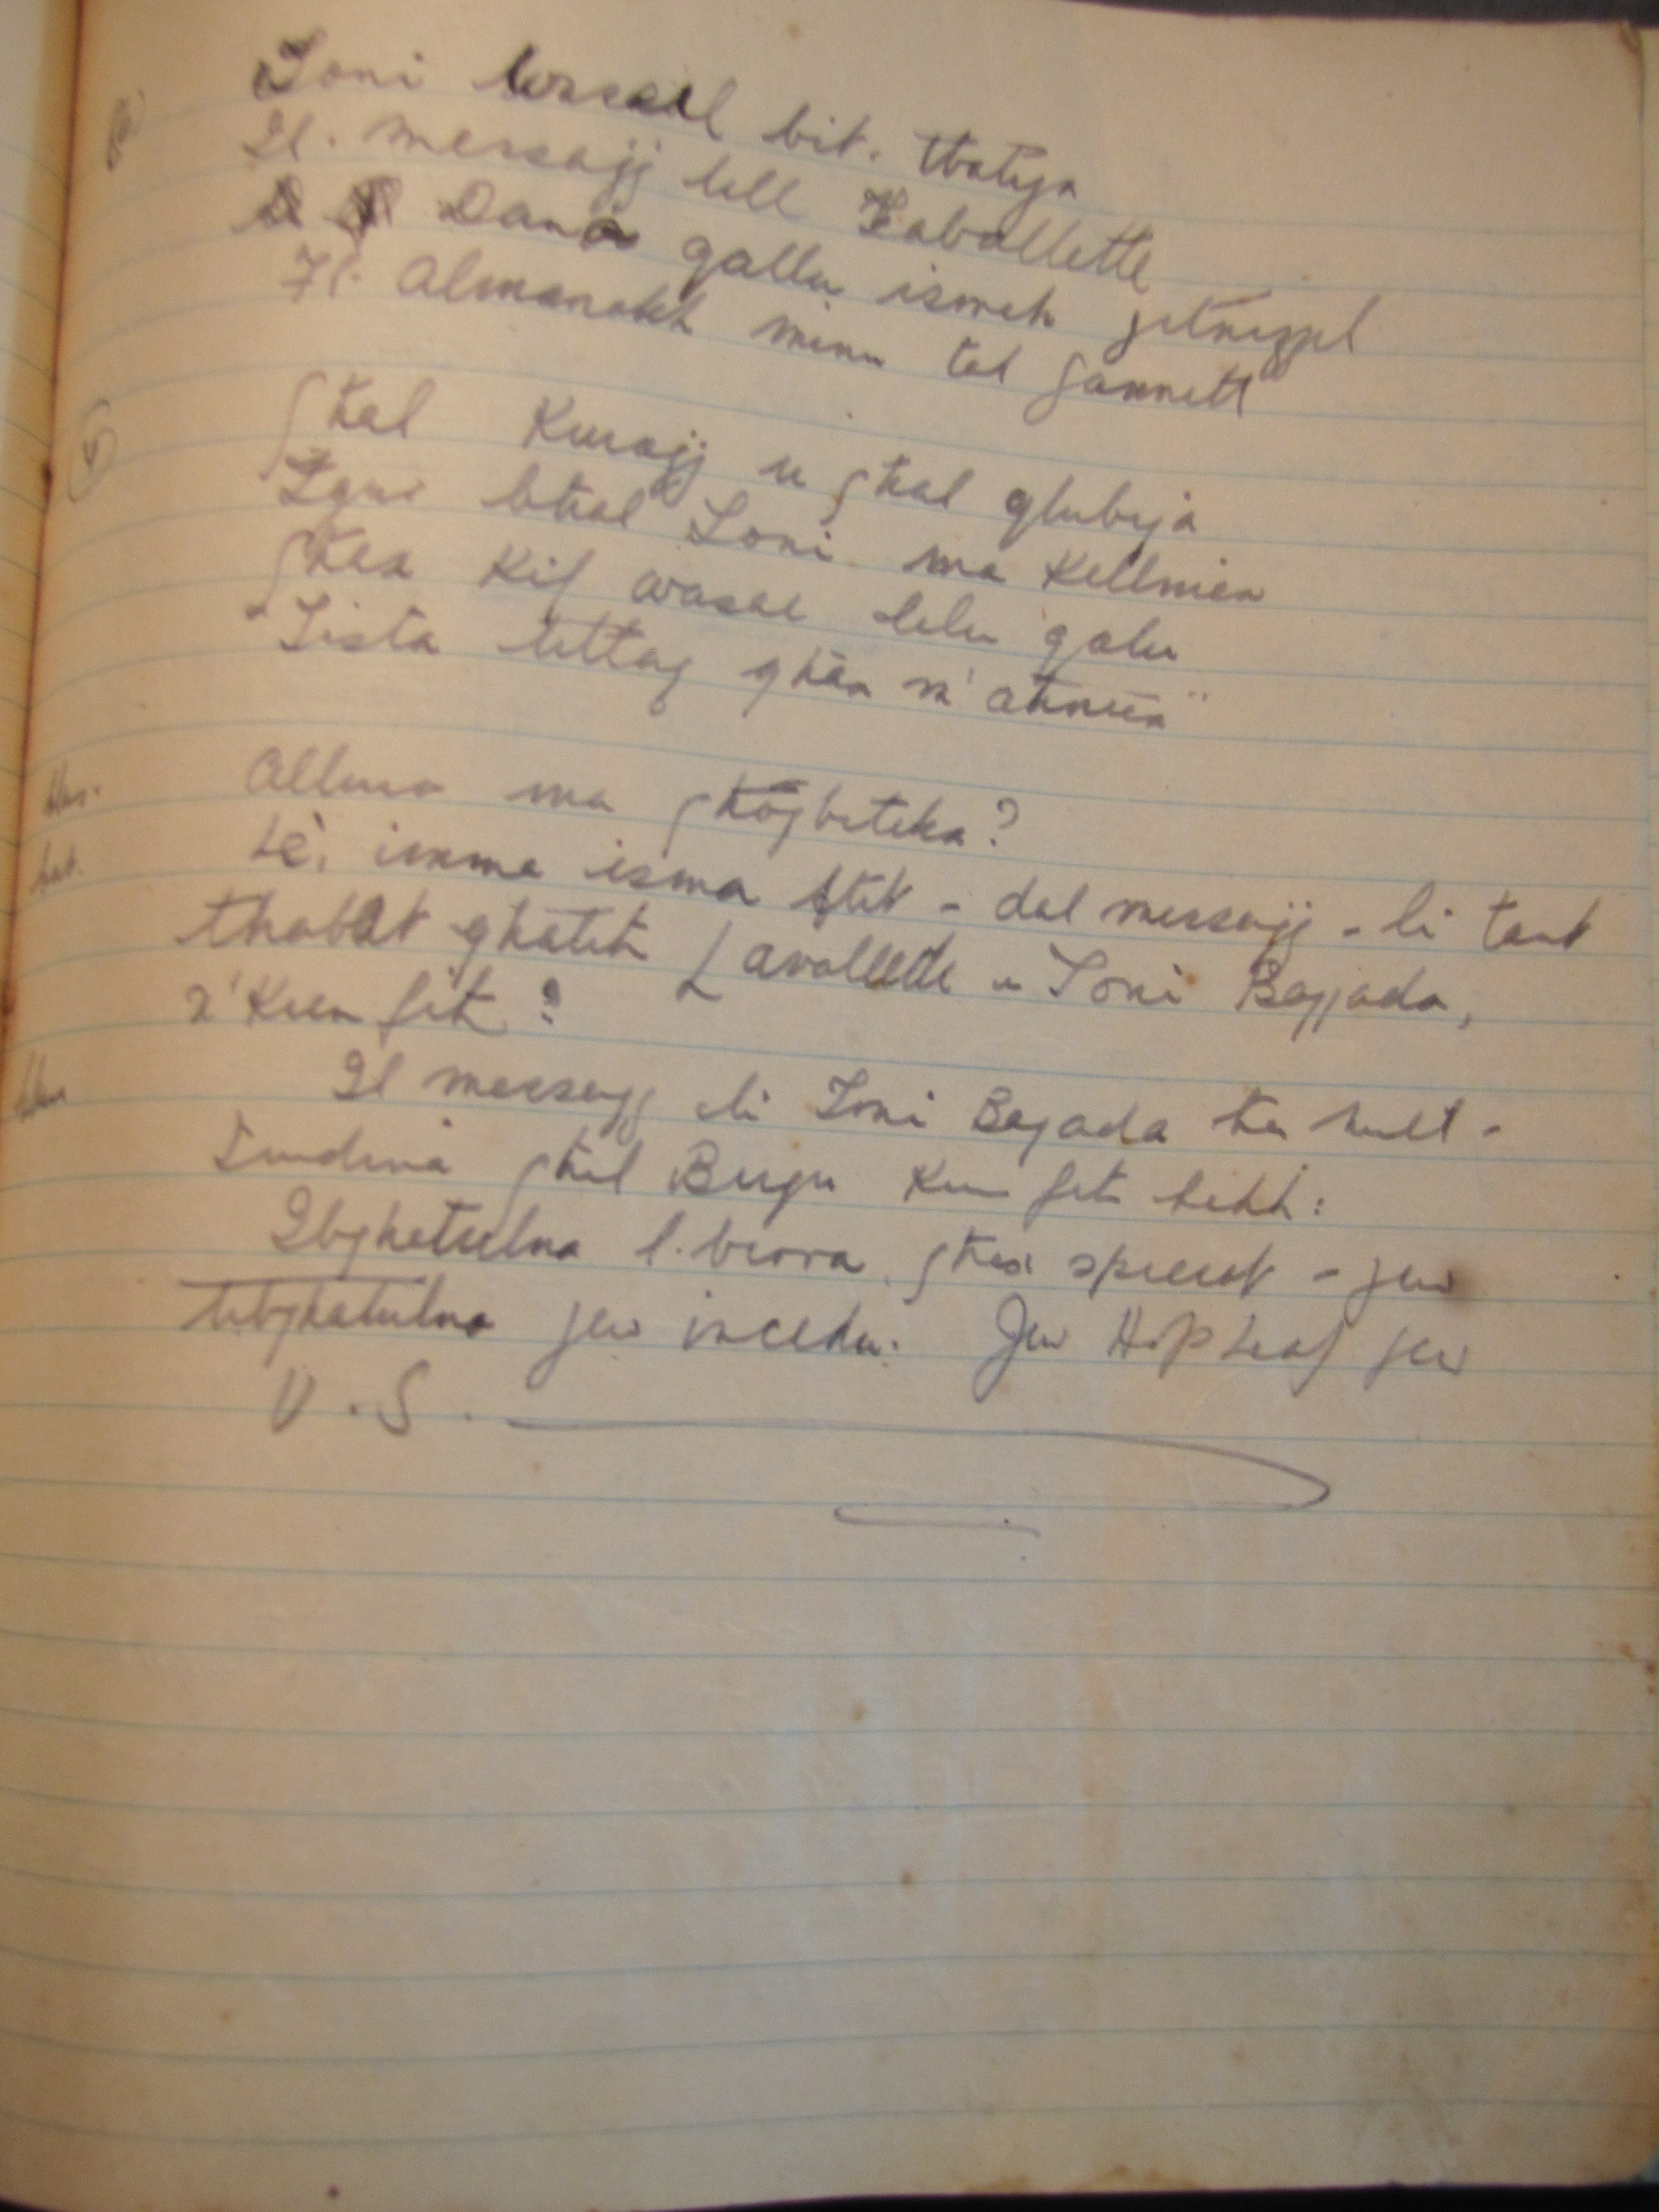 Toni wassal bit. tbatija
Il. messagg lill Lavallette
Dana gallu ismek jitnizzel
Fl. Almanakk minn tal Jannett
(4) Ghal Kuragg u ghal qlubija
Toni ma kellmien
Ghax Kif wasal lelu qalu
"Lista tettaq ghan n'
Allura ma ghogbitekx?
Le', imma isma ftit - dal messagg - li tant
thabat ghalih Lavallette u Toni Bajjada,
x'Kien fih?
Il messagg li Toni Bajada ha mill -
Imdina ghal Birgu Kien fih hekk:
Ibghatulna l. birra ghax spiccat - jew
tibghatulna jew incedu. Jew Hop Leaf jew
V.S.